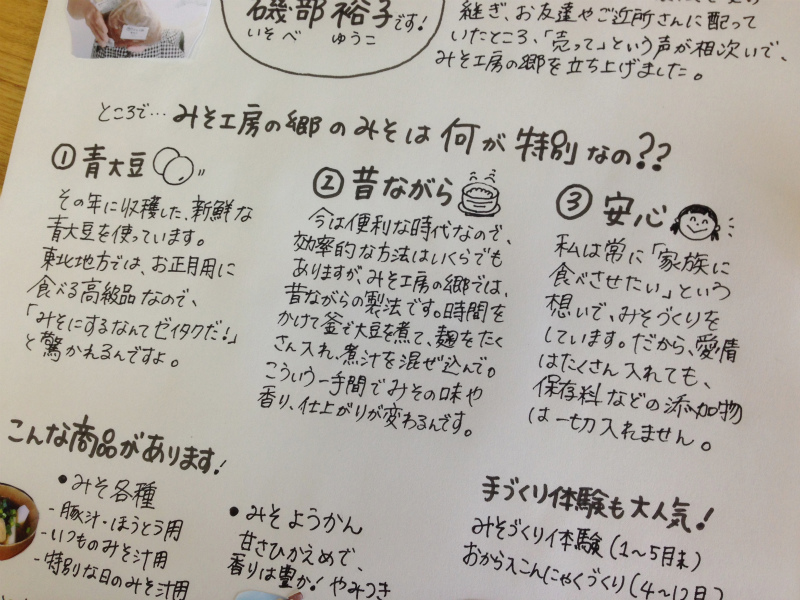 磯部 裕子です!
いそべ ゆうこ
継ぎ、お友達やご近所さんに配って
いたところ、「売って」という声が相次いで、
みそ工房の郷を立ち上げました。
ところで… みそ工房の郷のみそは何が特別なの??
① 青大豆
その年に収穫した、新鮮な
青大豆を使っています。
東北地方では、お正月用に
食べる高級品なので、
「みそにするなんてゼイタクだ!」
と驚かれるんですよ。
② 昔ながら
今は便利な時代なので、
効率的な方法はいくらでも
ありますが、みそ工房の郷では、
昔ながらの製法です。時間を
かけて釜で大豆を煮て、麹をたく
さん入れ、煮汁を混ぜ込んで。
こういう一手間でみその味や
香り、仕上がりが変わるんです。
③ 安心
私は常に「家族に
食べさせたい」という
想いで、みそづくりを
しています。だから、愛情
はたくさん入れても、
保存料などの添加物
は一切入れません。
こんな商品があります!
・みそ各種
-豚汁・ほうとう用
-いつものみそ汁用
-特別な日のみそ汁用
・みそようかん
甘さひかえめで、
香りは豊か! やみつき
手づくり体験も大人気!
みそづくり体験(1〜5月末)
おから入こんにゃくづくり(4〜12月)